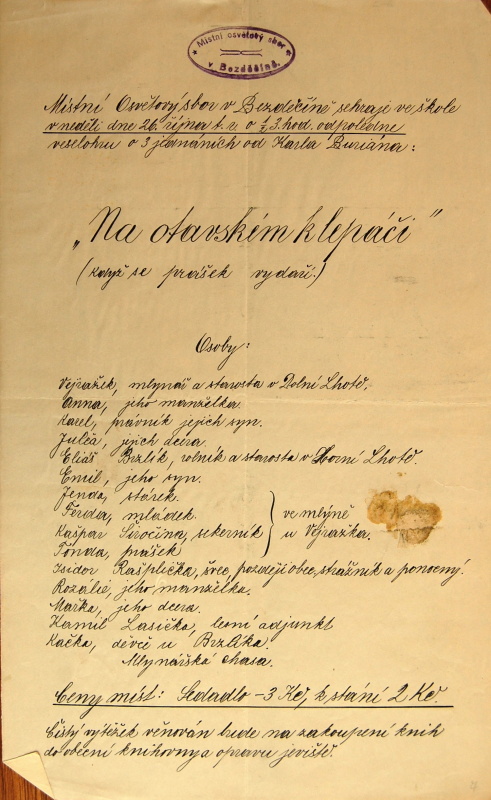 Místní osvětový sbor
v Bezděčíně.
Místní Osvětový sbor v Bezděčíně sehraje ve škole
v neděli dne 26. října t. r. o ½ 3. hod. odpoledne
veselohru o 3 jednáních od Karla Buriána:
„Na otavském klepáči"
(když se prášek vydaří.)
Osoby:
Vejražek, mlynář a starosta v Dolní Lhotě.
Anna, jeho manželka.
Karel, právník jejich syn.
Julča, jejich dcera.
Eliáš Brzlík, rolník a starosta v Horní Lhotě.
Emil, jeho syn.
Jenda, stárek.
Ferda, mládek.
Kašpar Širocina, sekerník
Tonda, prášek
ve mlýně
u Vejražka.
Isidor Rašplička, švec, později obec. strážník a ponocný.
Rozálie, jeho manželka.
Mařka, jeho dcera.
Kamil Lasička, lesní adjunkt
Kačka, děvče u Brzlíka.
Mlynářská chasa.
Ceny míst: Sedadlo - 3 Kč, k stání 2 Kč.
Čistý výtěžek věnován bude na zakoupení knih
do obecní knihovny a opravu jeviště.